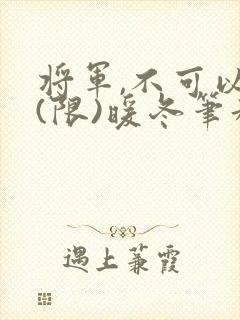 将军,不可以
(限)暖冬笔
遇上蒹霞